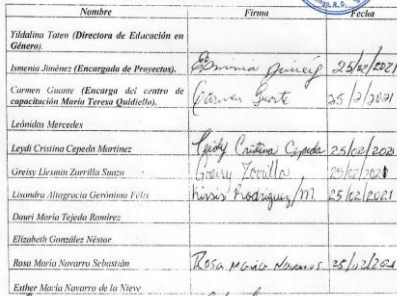 Nombre Firma Fecha
Yildalina Taten (Directora de Educación en
Género).
Ismenia Jiménez (Encargada de Proyectos). 25/02/2021
Carmen Guante (Encarga del centro de
capacitación María Teresa Quidiello). Carmen 25/2/2021
Leónidas Mercedes
Leydi Cristina Cepeda Martínez Leidy Cristina Cepeda 25/02/2021
Greisy Liesmin Zorrilla Suazo Greisy Zorrilla 25/02/2021
Lisandra Altagracia Gerónimo Félix Rodriguez M. 25/02/2021
Dauri María Tejeda Ramírez
Elizabeth González Néstor
Rosa María Navarro Sebastián Rosa Maria Navarro S 25/02/2021
Esther María Navarro de la Nieve